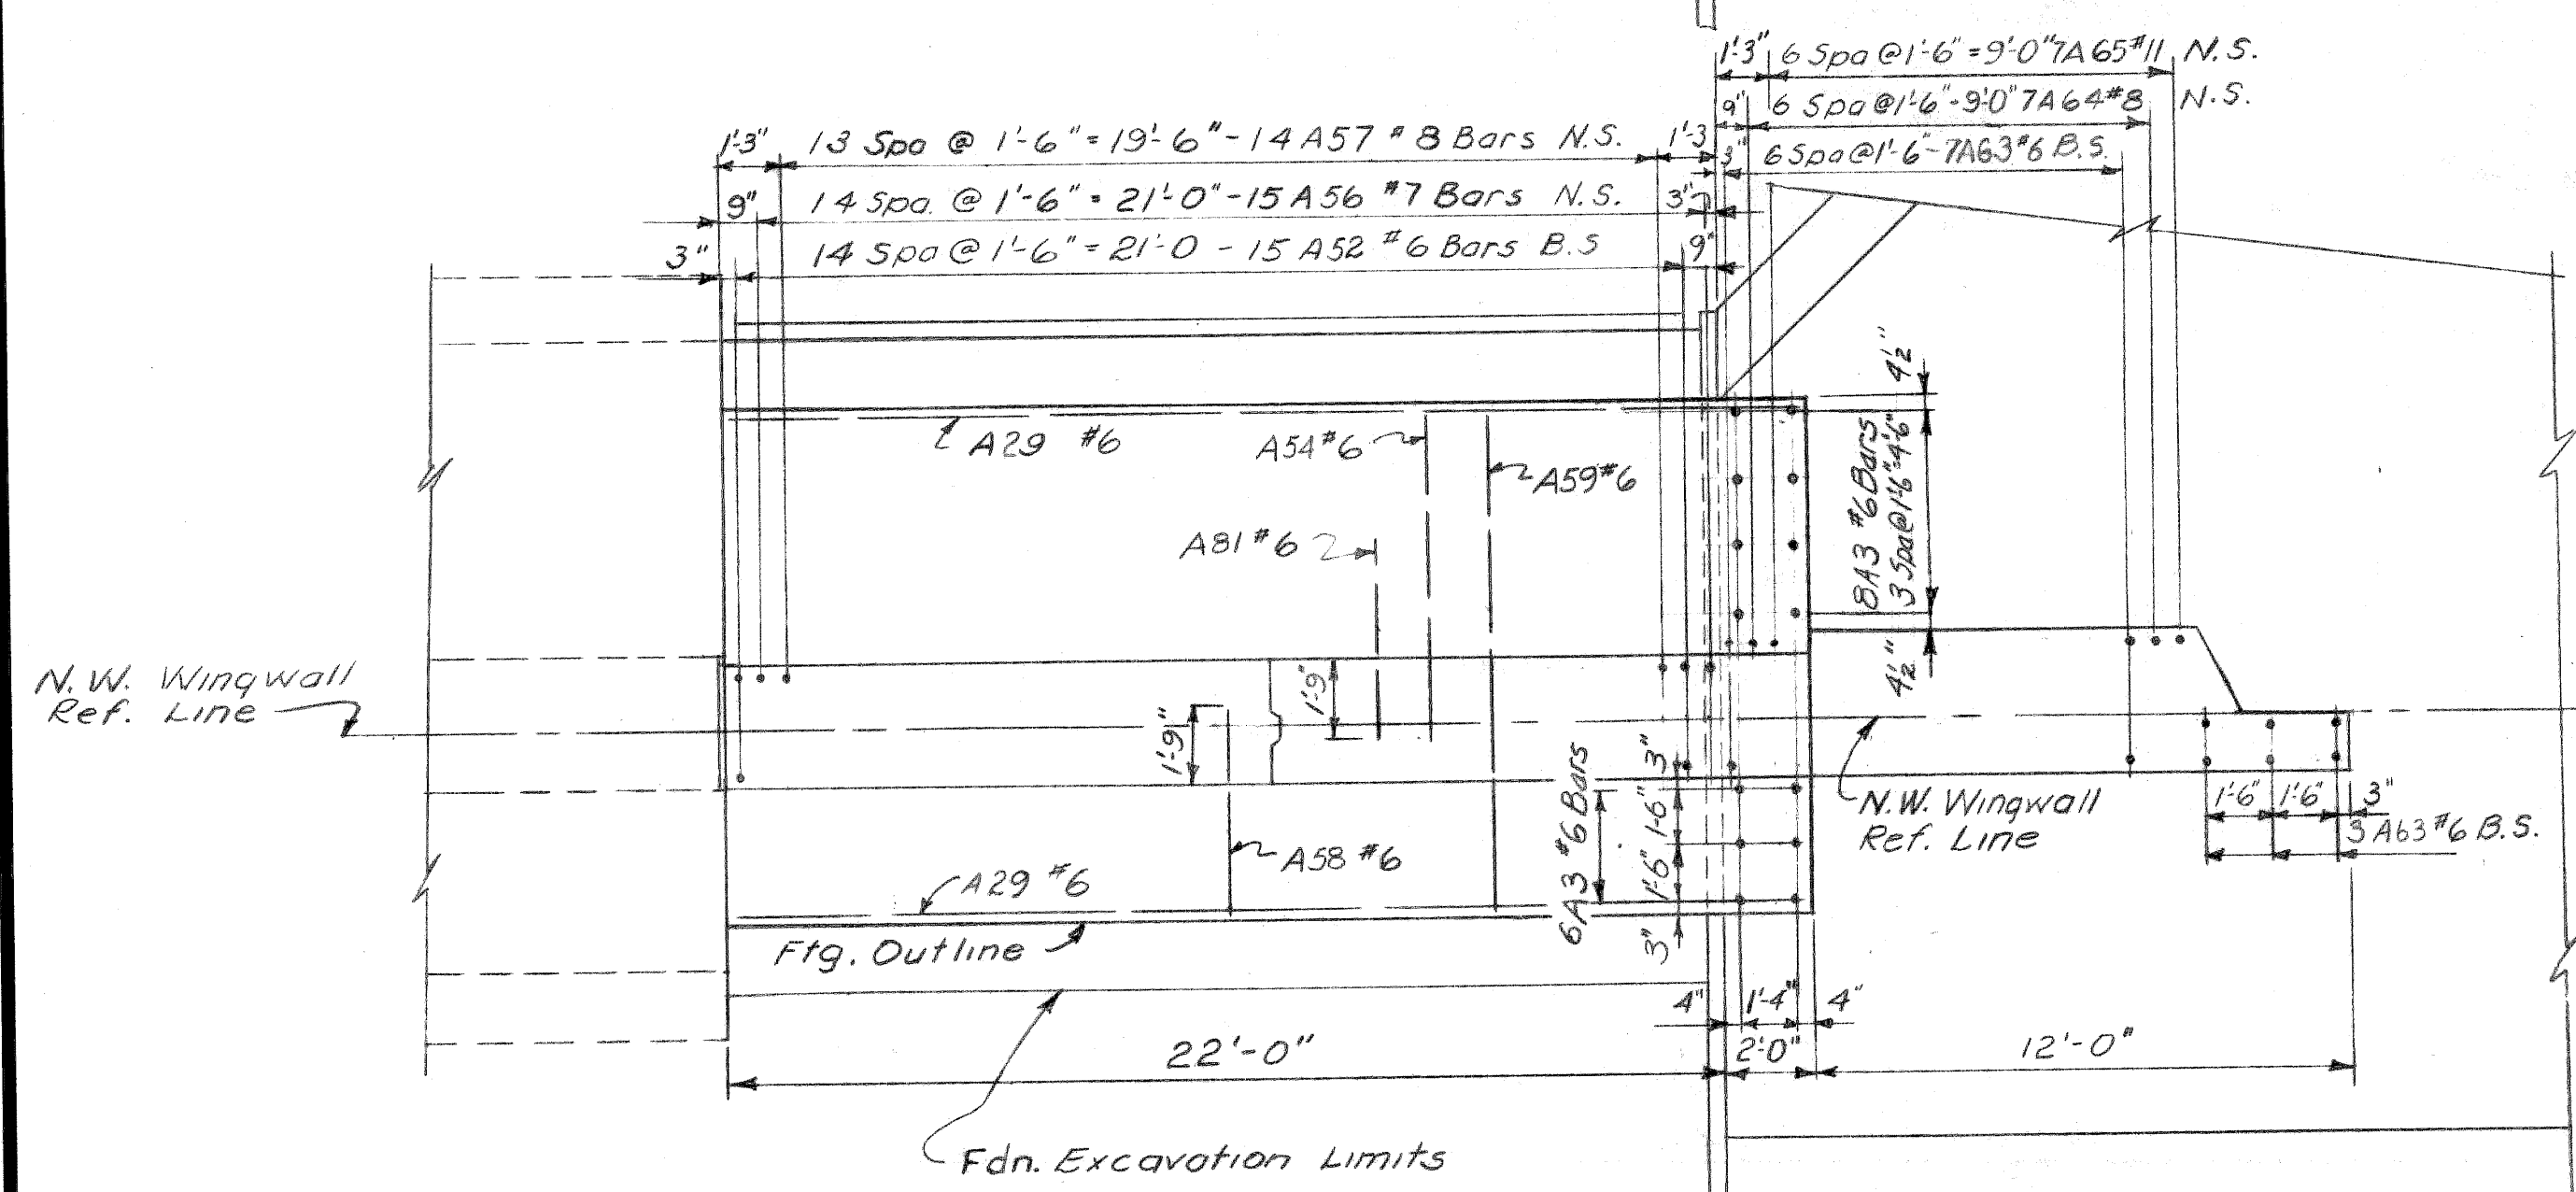 1'-3" 6 Spa @ 1'-6" = 9'-0" 7A65 #11 N.S.
9" 6 Spa @ 1'-6" - 9'-0" 7A64 #8 N.S.
3" 6 Spa @ 1'-6" - 7A63 #6 B.S.
1'-3" 13 Spa @ 1'-6" = 19'-6" - 14 A57 #8 Bars N.S. 1'-3
9" 14 Spa. @ 1'-6" = 21'-0" - 15 A56 #7 Bars N.S. 3"
3" 14 Spa @ 1'-6" = 21'-0 - 15 A52 #6 Bars B.S 9"
A29 #6
A54 #6
A59 #6
A81 #6
4½"
8A3 #6 Bars
3 Spa @ 1'-6" = 4'-6"
4½"
N.W. Wingwall
Ref. Line
1'-9"
1'-9"
6A3 #6 Bars
3"
1'-6"
1'-6"
3"
N.W. Wingwall
Ref. Line
1'-6" 1'-6" 3"
3 A63 #6 B.S.
A58 #6
A29 #6
Ftg. Outline
4" 1'-4" 4"
22'-0"
2'-0"
12'-0"
Fdn. Excavation Limits